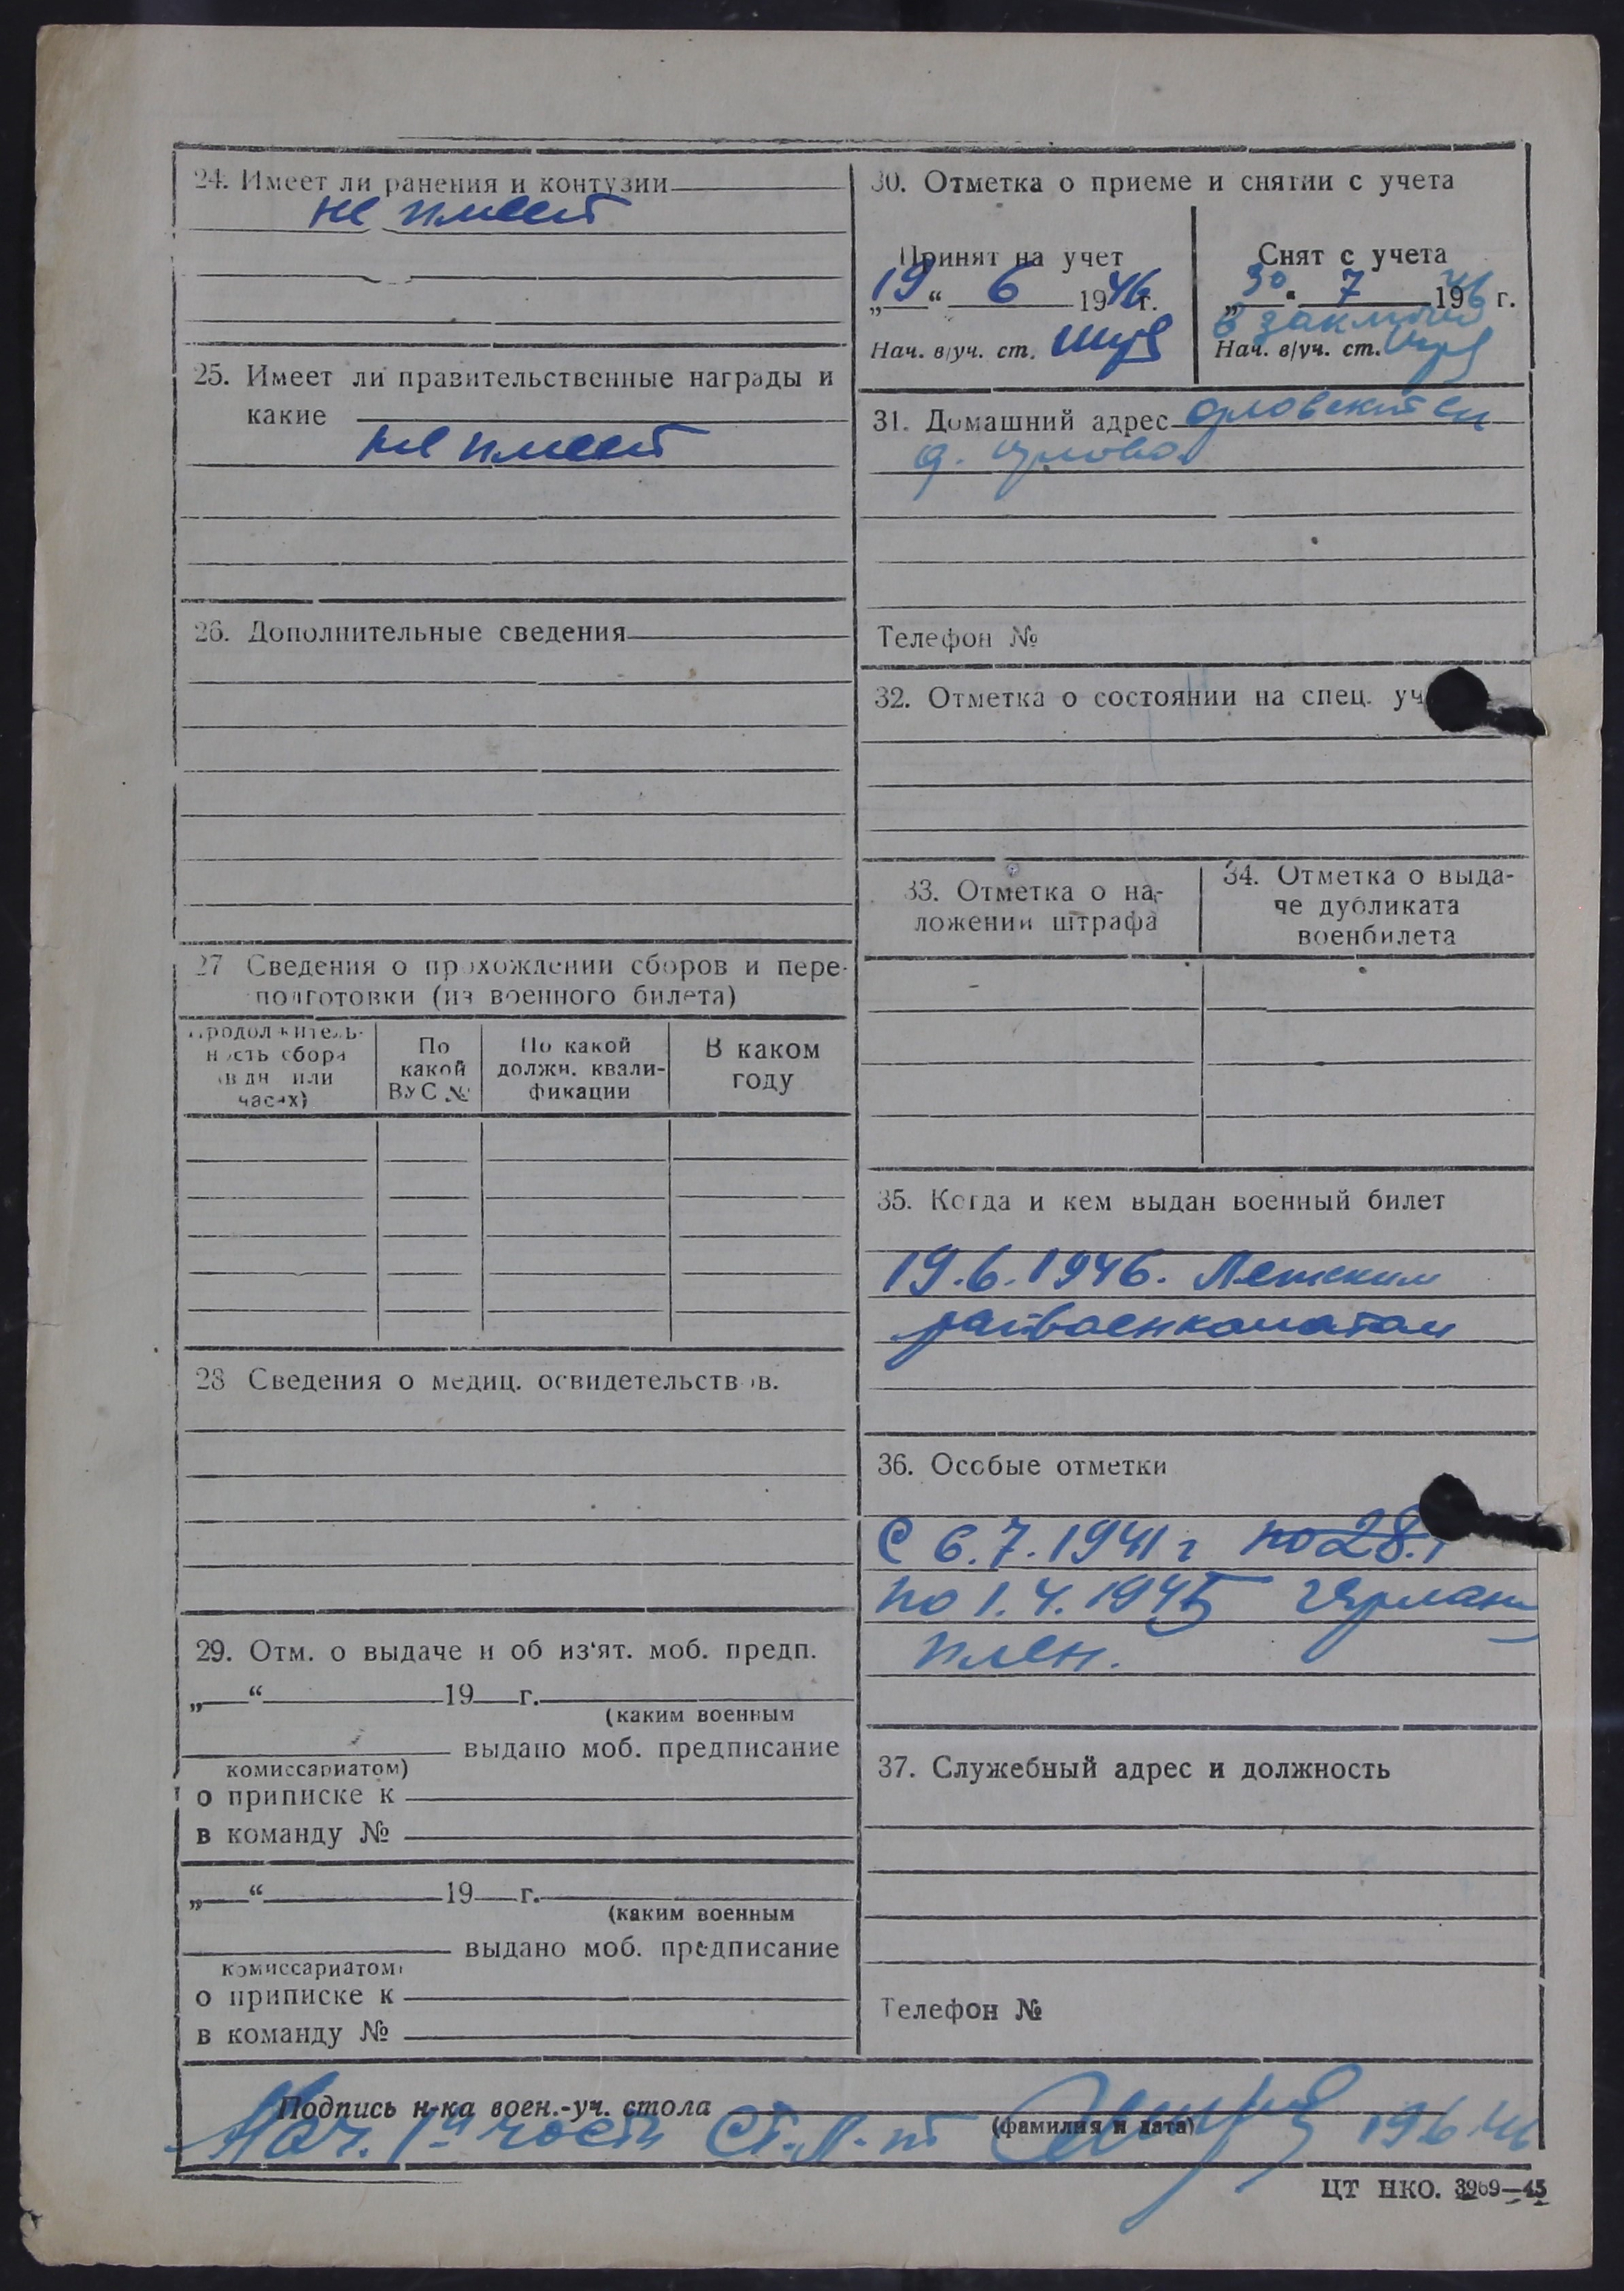 24. Имеет ли ранения и контузии
не имеет
25. Имеет ли правительственные награды и
какие
не имеет
26. Дополнительные сведения
27 Сведения о прохождении сборов и пере-
подготовки (из военного билета)
Продолжитель-
ность сбора
(в дн или
часах)
По
какой
ВУС №
По какой
должн. квали-
фикации
В каком
году
28 Сведения о медиц. освидетельствов.
29. Отм. о выдаче и об из'ят. моб. предп.
„ “ 19 г.
(каким военным
выдано моб. предписание
комиссариатом)
о приписке к
в команду №
„ “ 19 г.
(каким военным
выдано моб. предписание
комиссариатом)
о приписке к
в команду №
30. Отметка о приеме и снятии с учета
Принят на учет
„19“ 6 1946 г.
Нач. в/уч. ст.
Снят с учета
„30“ 7 1946 г.
в заключ
Нач. в/уч. ст.
31. Домашний адрес Орловский
д.
Телефон №
32. Отметка о состоянии на спец. уч
33. Отметка о на-
ложении штрафа
34. Отметка о выда-
че дубликата
военбилета
35. Когда и кем выдан военный билет
19.6.1946. Летским
райвоенкоматом
36. Особые отметки
С 6.7.1941 г по 28.
по 1.4.1945 герман
плен.
37. Служебный адрес и должность
Телефон №
Подпись н-ка воен.-уч. стола
(фамилия и дата)
Нач. 1й части Ст. л-т 19 6 46
ЦТ НКО. 3969—45